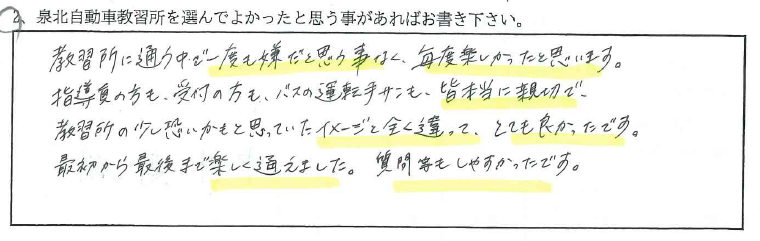 2、泉北自動車教習所を選んでよかったと思う事があればお書き下さい。
教習所に通う中で一度も嫌だと思う事なく、毎度楽しかったと思います。
指導員の方も、受付の方も、バスの運転手サンも、皆本当に親切で、
教習所の少し恐いかもと思っていたイメージと全く違って、とても良かったです。
最初から最後まで楽しく通えました。質問等もしやすかったです。